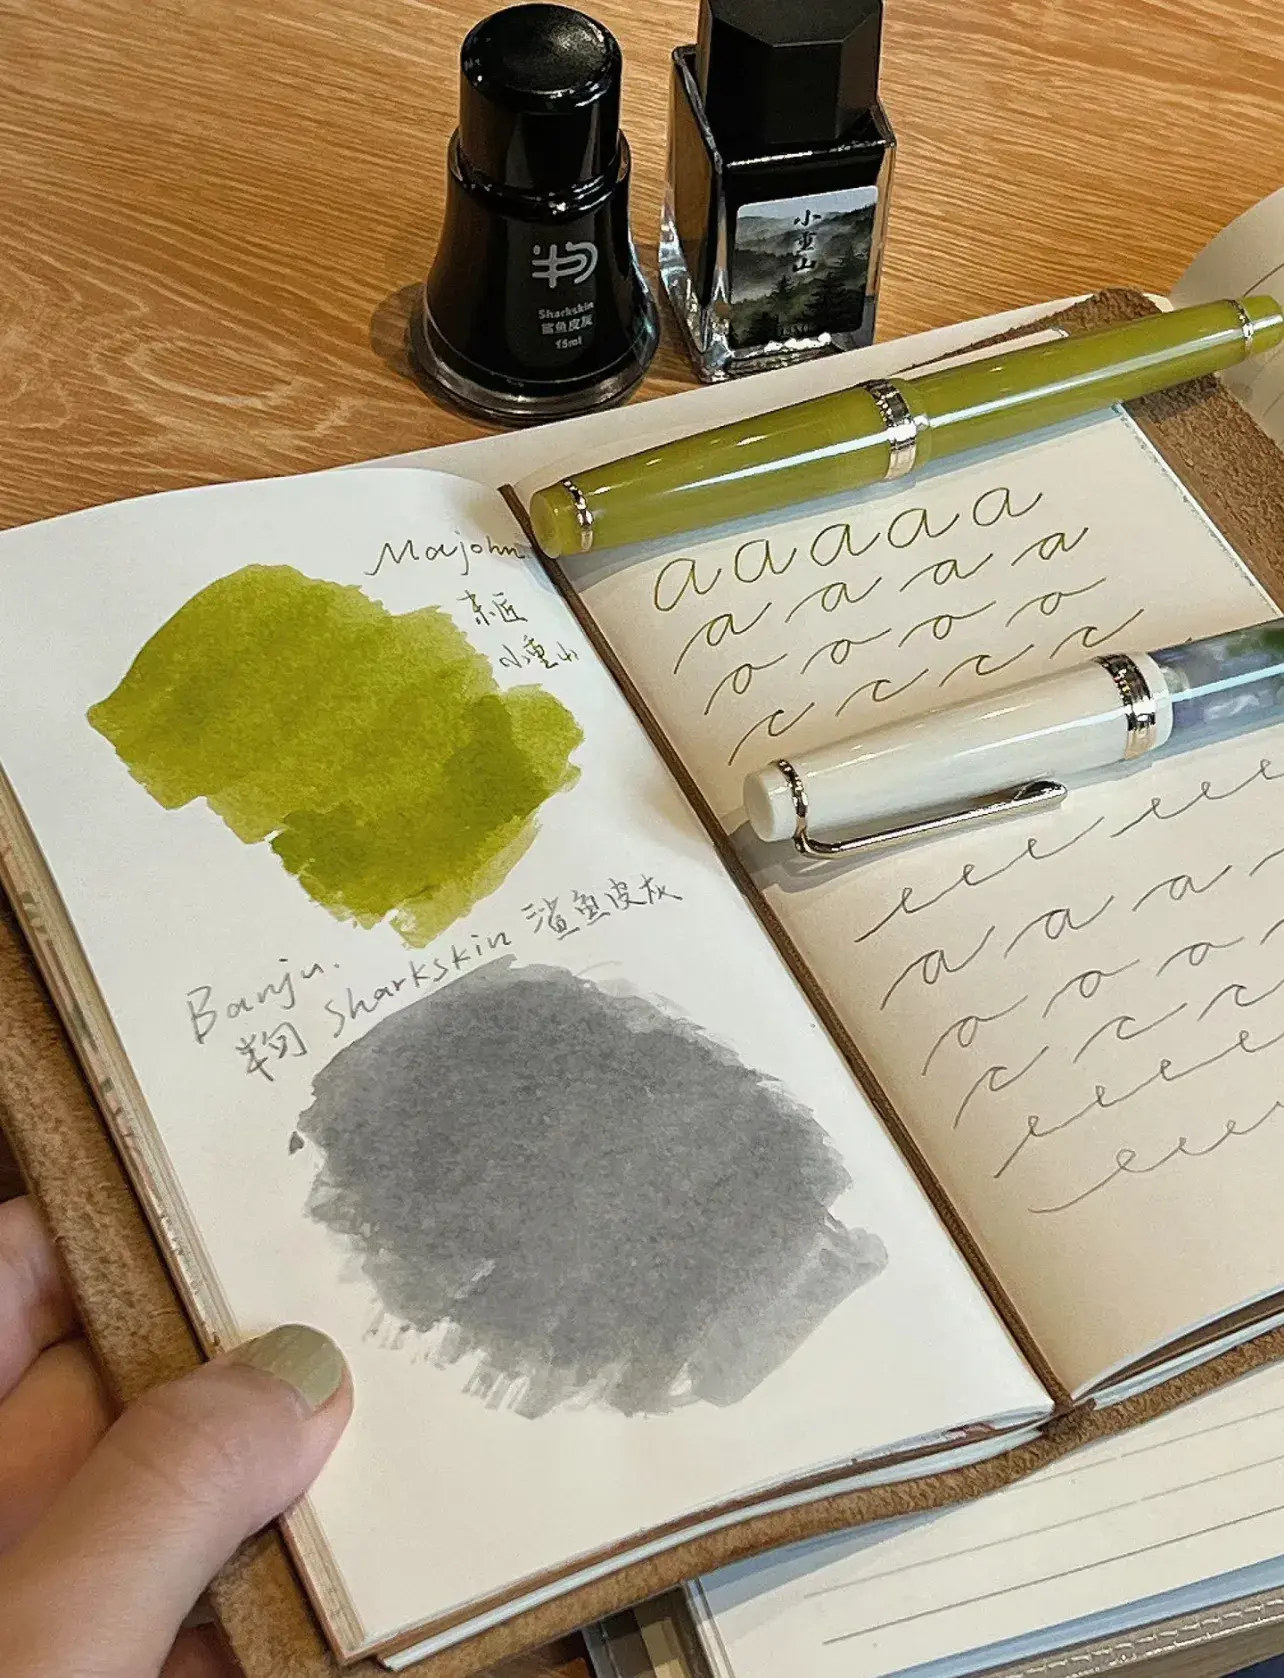 Sharkskin
鲨鱼皮灰
15ml
小重山
Majohn
末匠
小重山
Banju.
半句 Sharkskin 鲨鱼皮灰
a a a a a
a a a a
o o o o
c c c c
e e e e e e
a a a
o o o
c c c
e e e e
e e e e